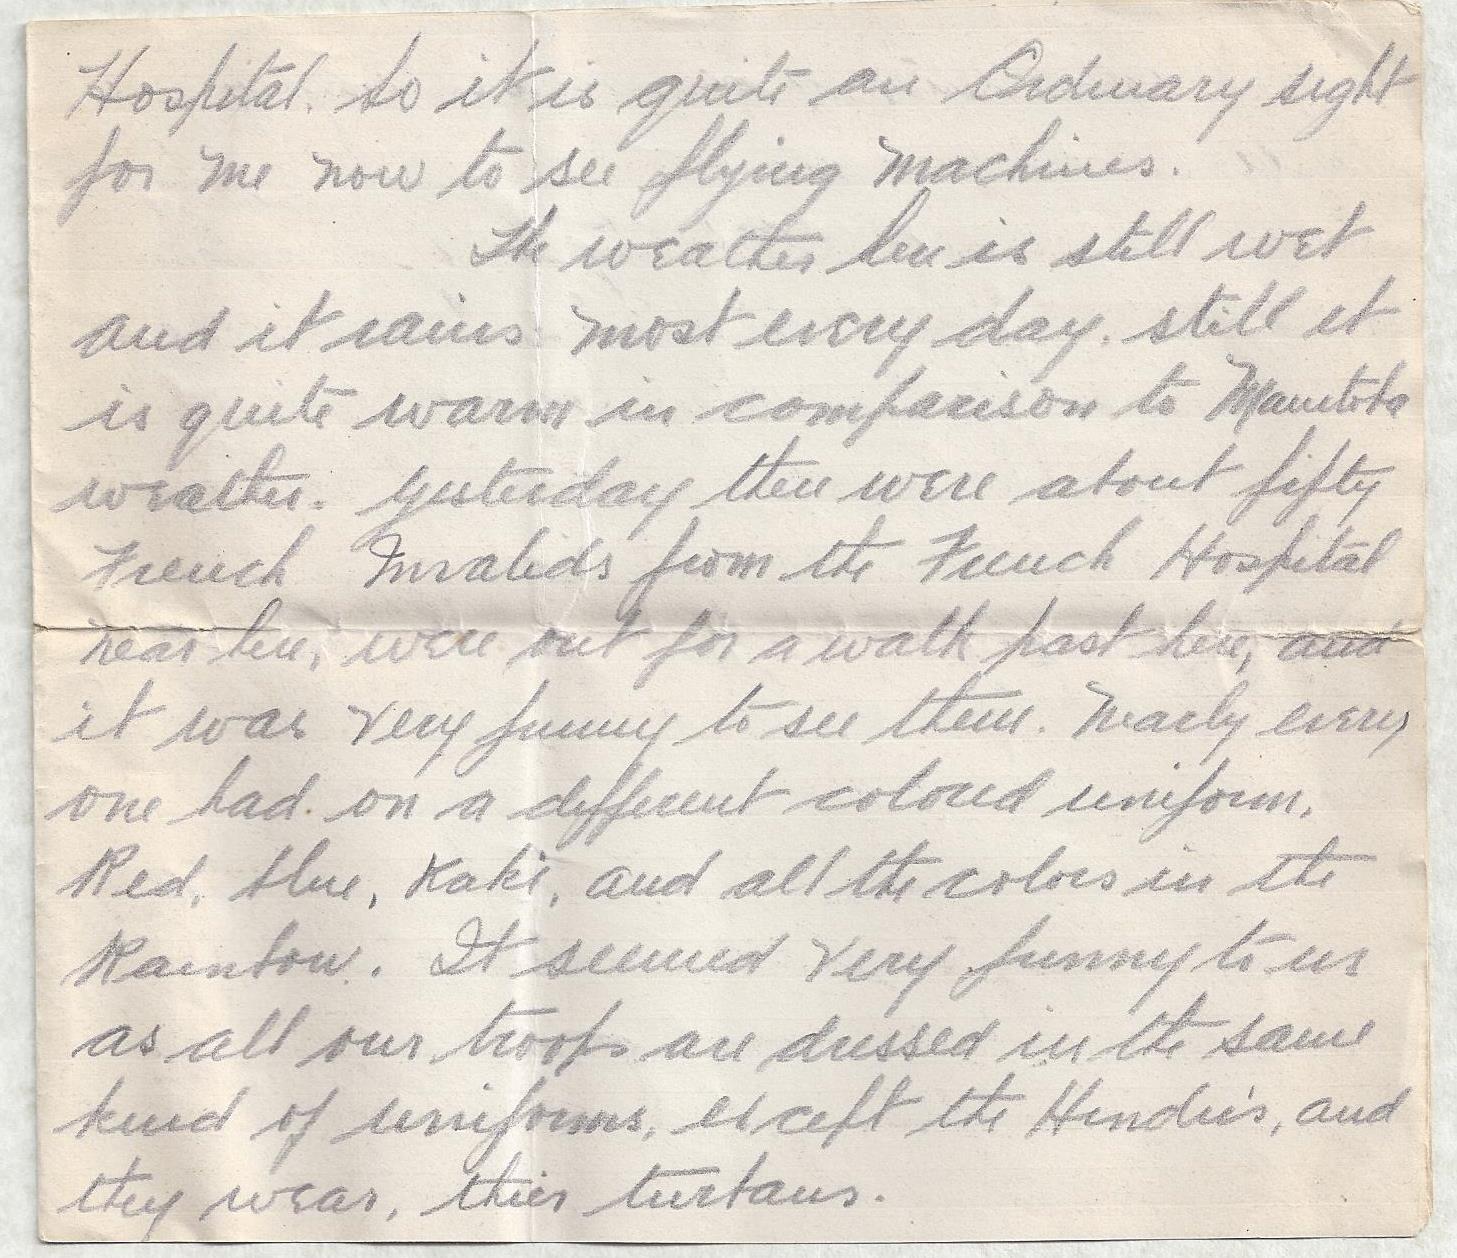 Hospital. So it is quite an Ordinary sight
for me now to see flying machines.
The weather here is still wet
and it rains most every day. still it
is quite warm in comparison to Manitoba
weather. yesterday there were about fifty
French Invalids from the French Hospital
near here, were out for a walk past here, and
it was very funny to see them. Nearly every
one had on a different colored uniform,
Red, blue, Kaki, and all the colors in the
Rainbow. It seemed very funny to us
as all our troops are dressed in the same
kind of uniforms, except the Hindu's, and
they wear, thier turbans.